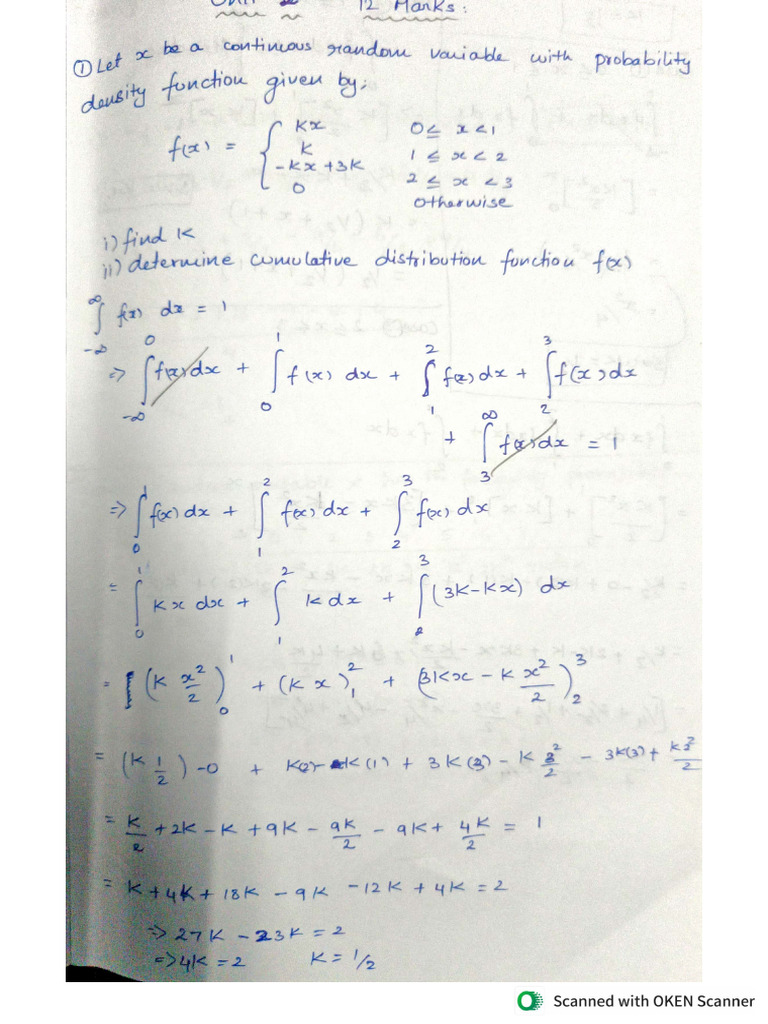 12 Marks:
① Let x be a continuous random variable with probability
density function given by;
f(x) = { Kx 0 ≤ x < 1
K 1 ≤ x < 2
-Kx + 3K 2 ≤ x < 3
0 otherwise
i) find K
ii) determine cumulative distribution function f(x)
∫_{-∞}^{∞} f(x) dx = 1
=> ∫_{-∞}^{0} f(x) dx + ∫_{0}^{1} f(x) dx + ∫_{1}^{2} f(x) dx + ∫_{2}^{3} f(x) dx
+ ∫_{3}^{∞} f(x) dx = 1
=> ∫_{0}^{1} f(x) dx + ∫_{1}^{2} f(x) dx + ∫_{2}^{3} f(x) dx
= ∫_{0}^{1} Kx dx + ∫_{1}^{2} K dx + ∫_{2}^{3} (3K - Kx) dx
= (K x²/2)_{0}^{1} + (K x)_{1}^{2} + (3Kx - K x²/2)_{2}^{3}
= (K 1/2) - 0 + K(2) - K(1) + 3K(3) - K 3²/2 - 3K(3) + K2²/2
= K/2 + 2K - K + 9K - 9K/2 - 9K + 4K/2 = 1
= K + 4K + 18K - 9K - 12K + 4K = 2
=> 27K - 23K = 2
=> 4K = 2 K = 1/2
Scanned with OKEN Scanner